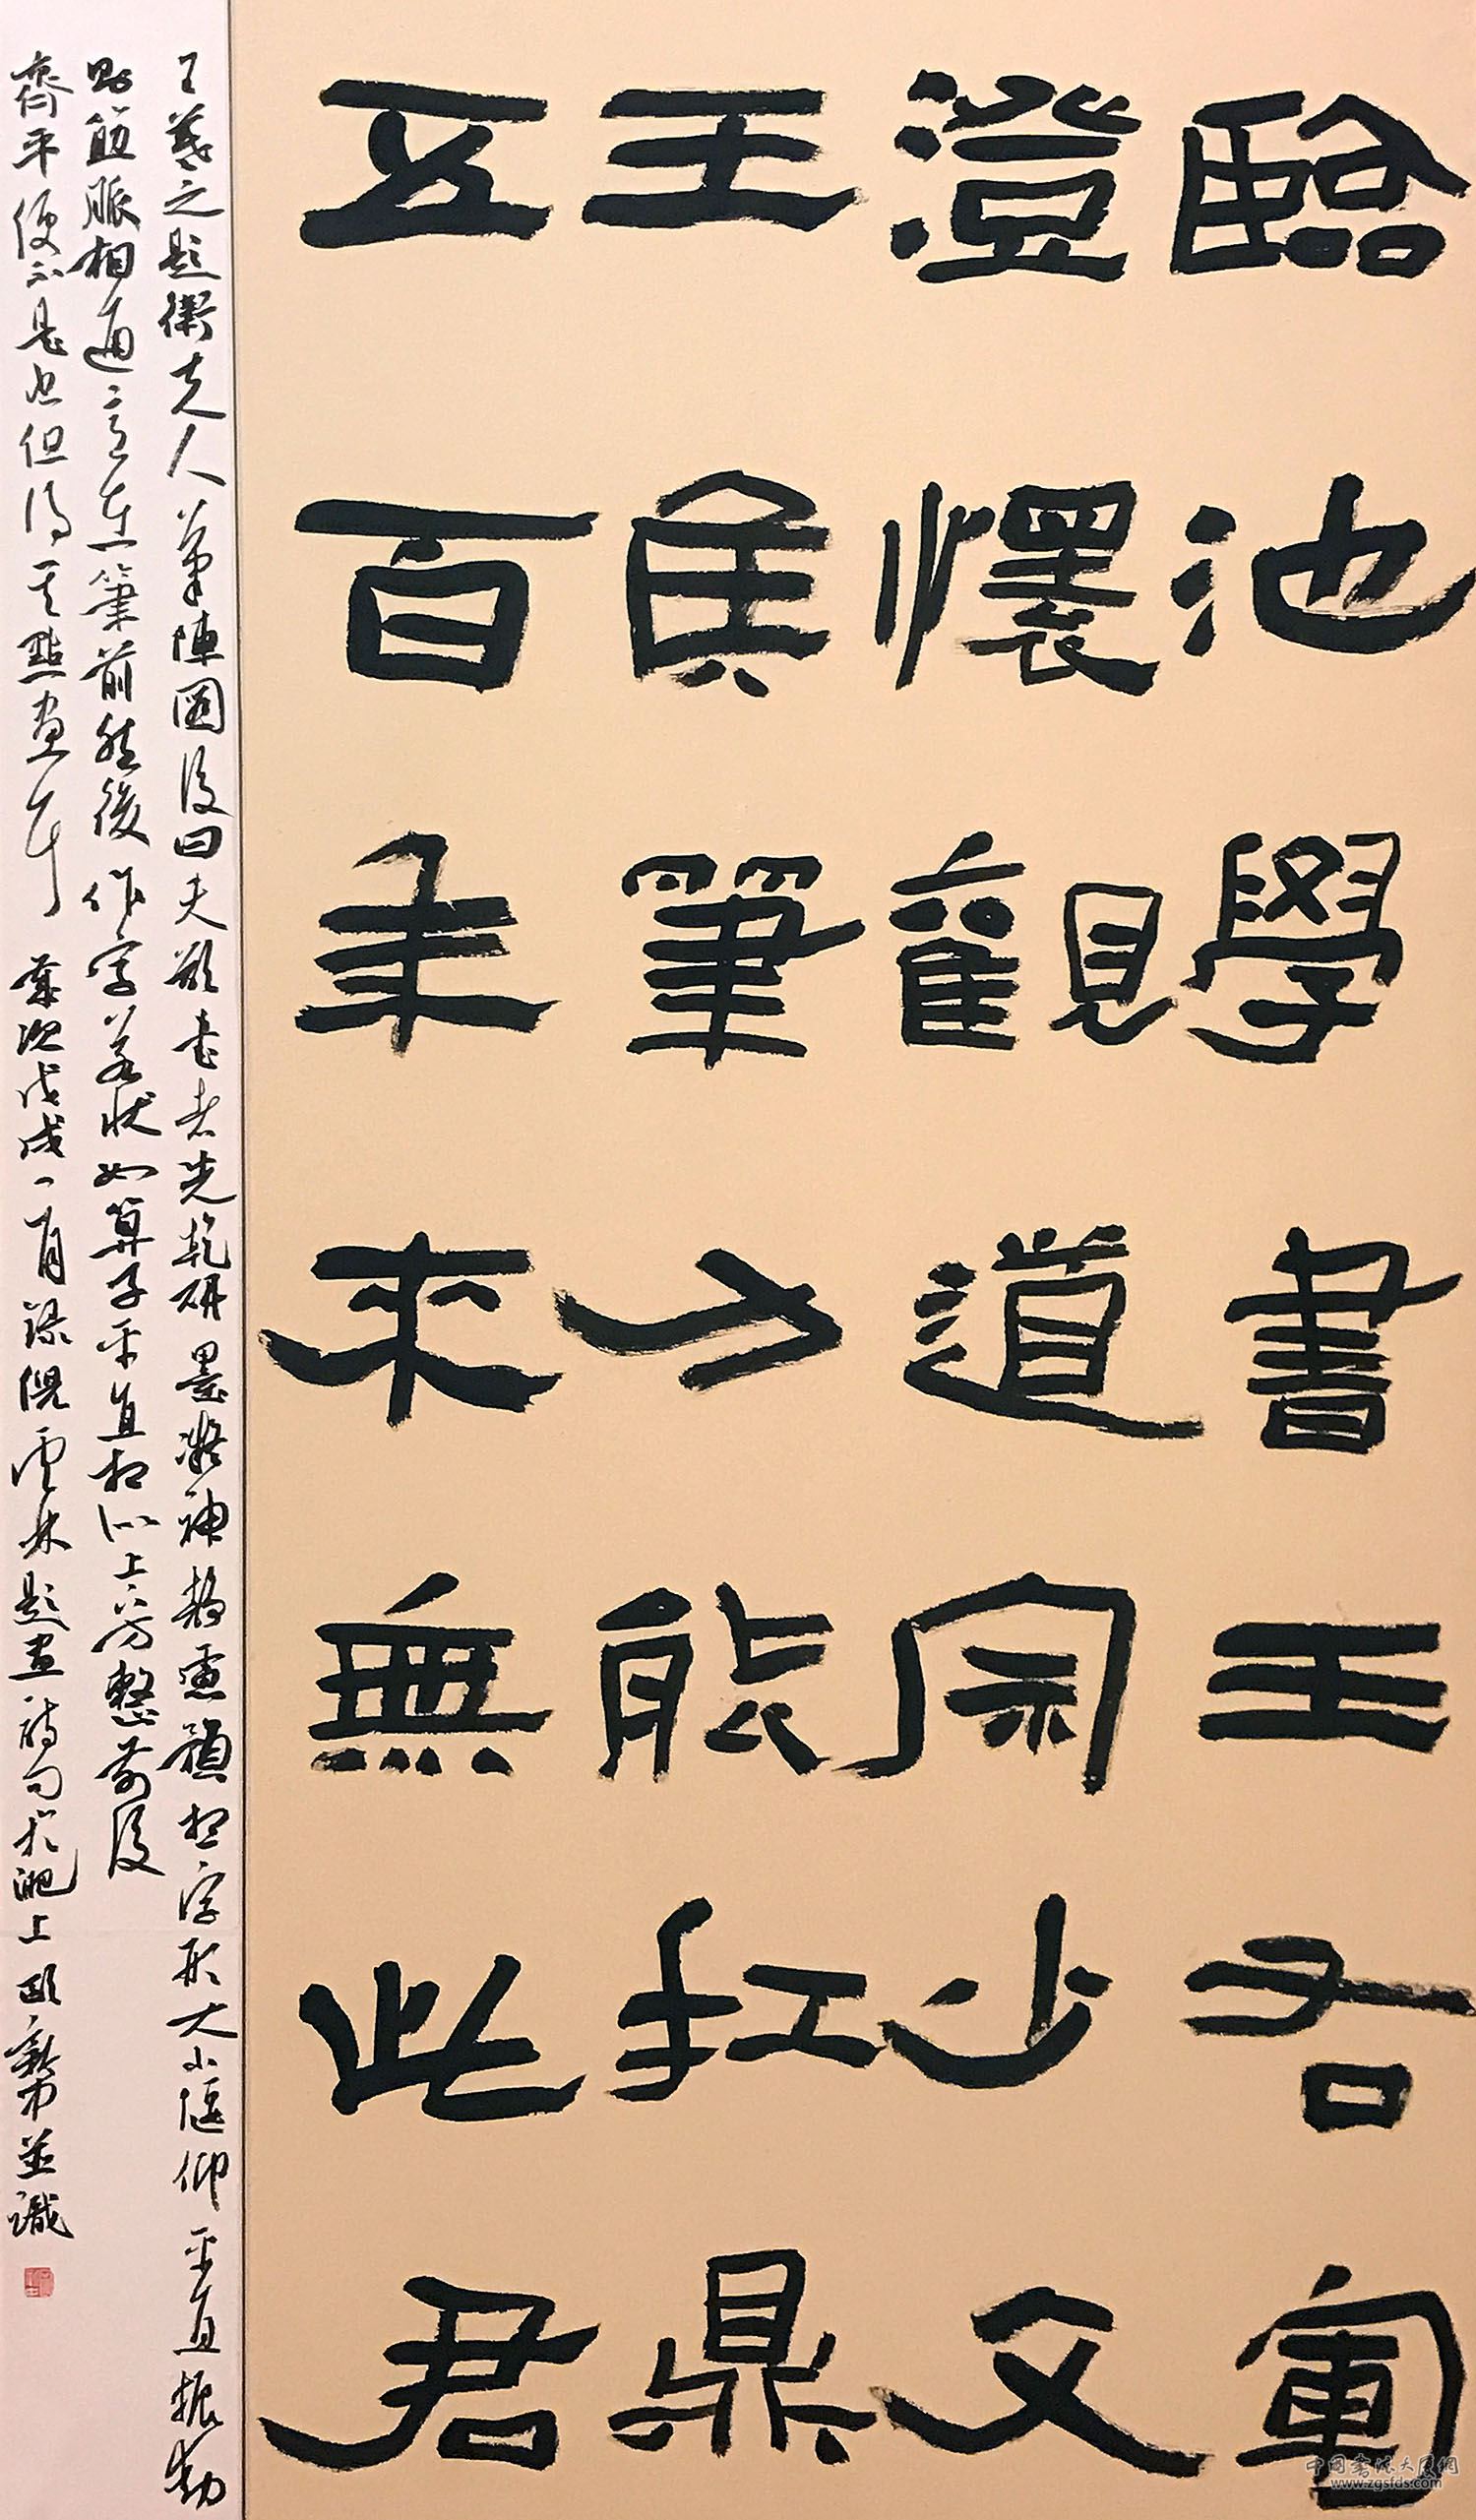 臨池學書王右軍
澄懷觀道宗少文
王侯筆力能扛鼎
五百年來無此君
王羲之題衛夫人筆陣圖後曰夫欲書者先乾研墨凝神靜慮預想字形大小偃仰平直振動
筋脈相通意在筆前然後作字若狀如算子平直相似上下方整前後
齊平便不是也但得其點畫耳 歲次戊戌一月錄倪雲林題畫詩句於淝上 並識
中國書法大展網
www.zgsfds.com